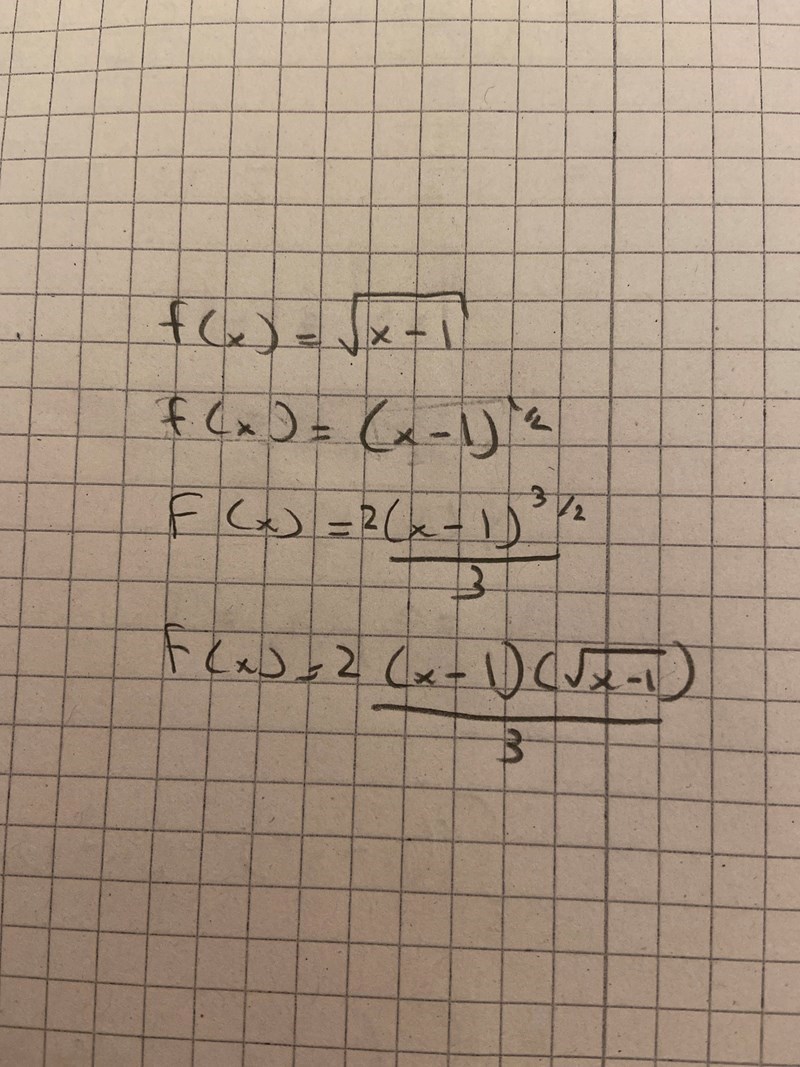 f(x) = √(x-1)
f(x) = (x-1)^1/2
F(x) = 2(x-1)^3/2
3
F(x) = 2 (x-1)(√(x-1))
3